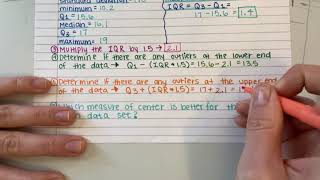 minimum = 10.2
Q1 = 15.6
Median = 16.1
Q3 = 17
maximum = 19
IQR = Q3 - Q1 =
17 - 15.6 = 1.4
③ Multiply the IQR by 1.5 → 2.1
④ Determine if there are any outliers at the lower end
of the data → Q1 - (IQR * 1.5) = 15.6 - 2.1 = 13.5
Determine if there are any outliers at the upper end
of the data → Q3 + (IQR * 1.5) = 17 + 2.1 =
Which measure of center is better for
data set?